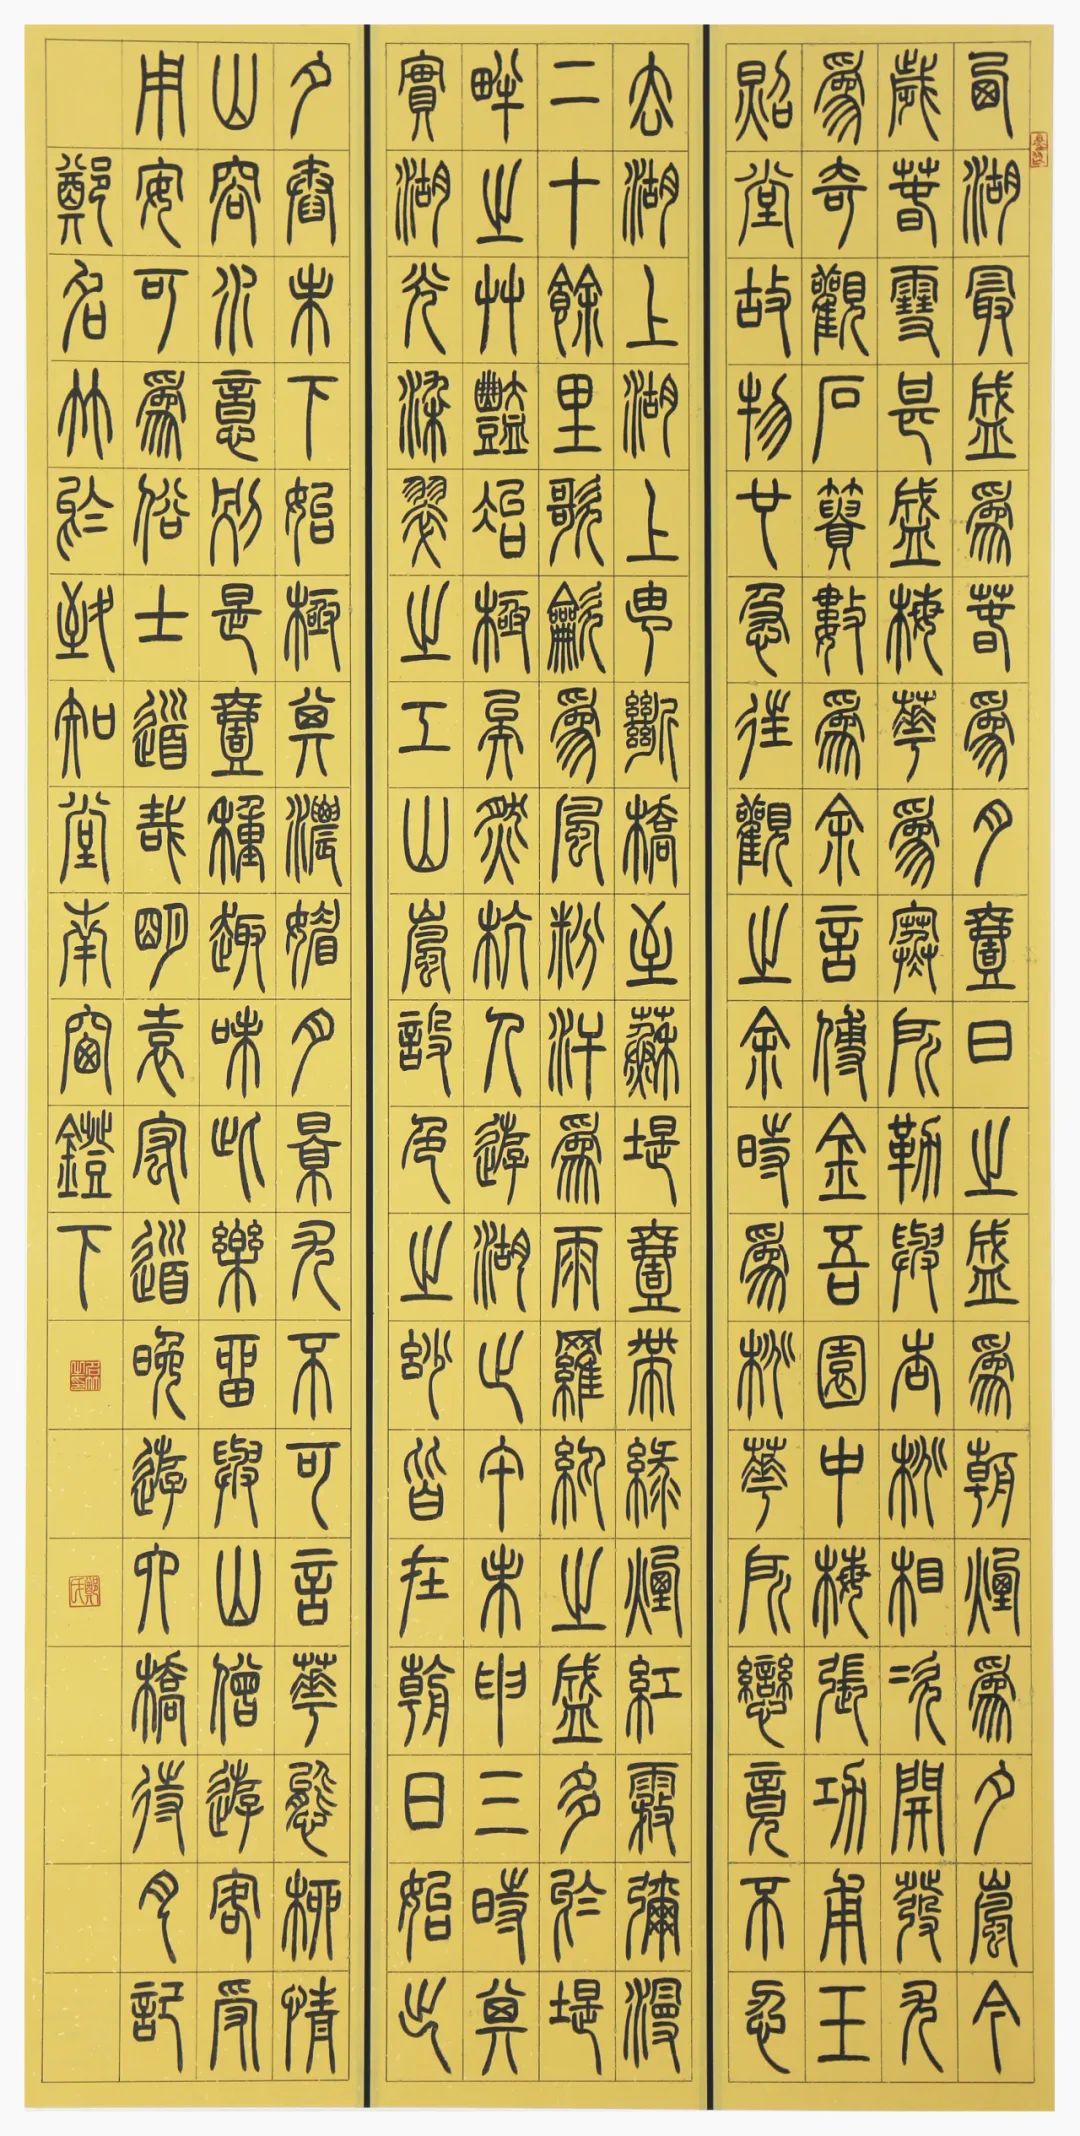 西湖最盛爲春爲月壹日之盛爲朝煙爲夕嵐今
歲春雪甚盛梅華爲寒所勒與杏桃相次開發尤
爲奇觀石簣數爲余言傅金吾園中梅張功甫玉
照堂故物也急往觀之余時爲桃華所戀竟不忍
去湖上湖上由斷橋至蘇堤壹帶綠煙紅霧彌漫
二十餘里歌龡爲風粉汗爲雨羅紈之盛多於堤
畔之艸豔冶極矣然杭人遊湖止午未申三時其
實湖光染翠之工山嵐設色之妙皆在朝日始出
夕舂未下始極其濃媚月景尤不可言華態柳情
山容水意別是壹種趣味此樂留與山僧遊客受
用安可爲俗士道哉明袁宏道晚遊六橋待月記
鄭名林於致知堂南窗鐙下
名林之印
鄭氏